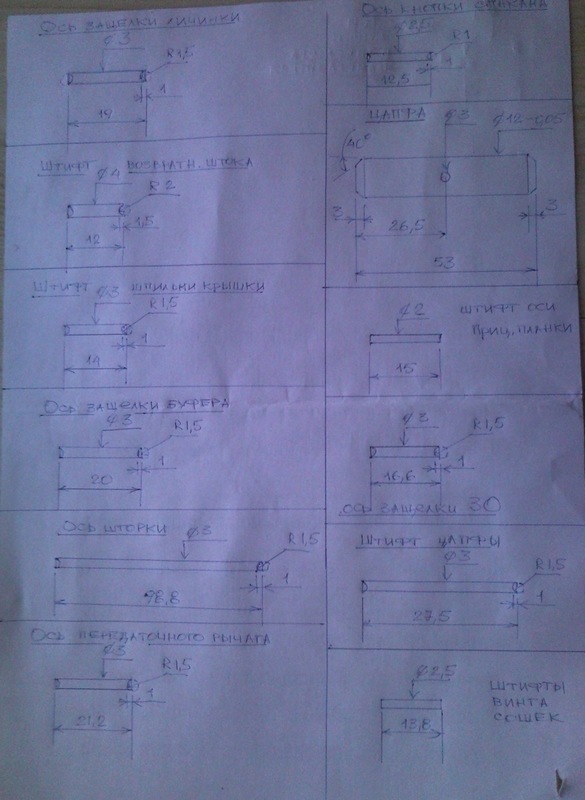 Ось защелки личинки
ф3
R1,5
1
19
Штифт возвратн. штока
ф4
R2
1,5
12
Штифт шпильки крышки
ф3
R1,5
1
14
Ось защелки буфера
ф3
R1,5
1
20
Ось шторки
ф3
R1,5
1
98,8
Ось передаточного рычага
ф3
R1,5
1
21,2
Ось кнопки
ф2,5
R1
1
12,5
Цапфа
ф3
ф12-0,05
40°
3
3
26,5
53
ф2
штифт оси
приц. планки
15
ф3
R1,5
1
16,6
ось защелки ЗО
Штифт цапфы
ф3
R1,5
1
27,5
ф2,5
штифты
винта
сошек
13,8